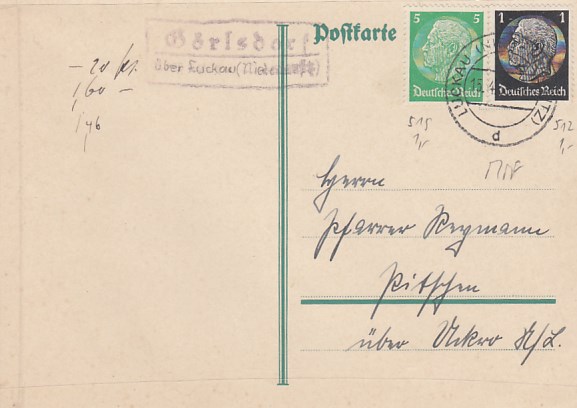 Görlsdorf
über Luckau (Niederlausitz)
Postkarte
5 5
Deutsches Reich
1 1
Deutsches Reich
LUCKAU
TZ)
d
— 20
1,60 —
1/46
515
1,-
512
1,-
Herrn
Pfarrer Reymann
Pitschen
über Uckro N/L.